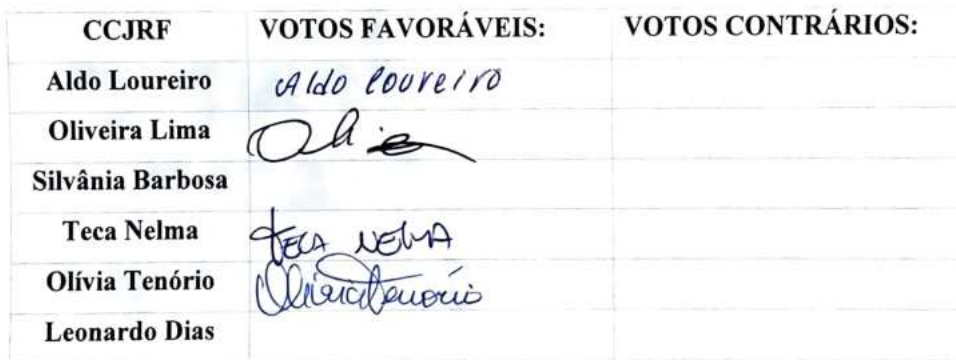 CCJRF VOTOS FAVORÁVEIS: VOTOS CONTRÁRIOS:
Aldo Loureiro Aldo Loureiro
Oliveira Lima
Silvânia Barbosa
Teca Nelma TECA NELMA
Olívia Tenório Olívia Tenório
Leonardo Dias